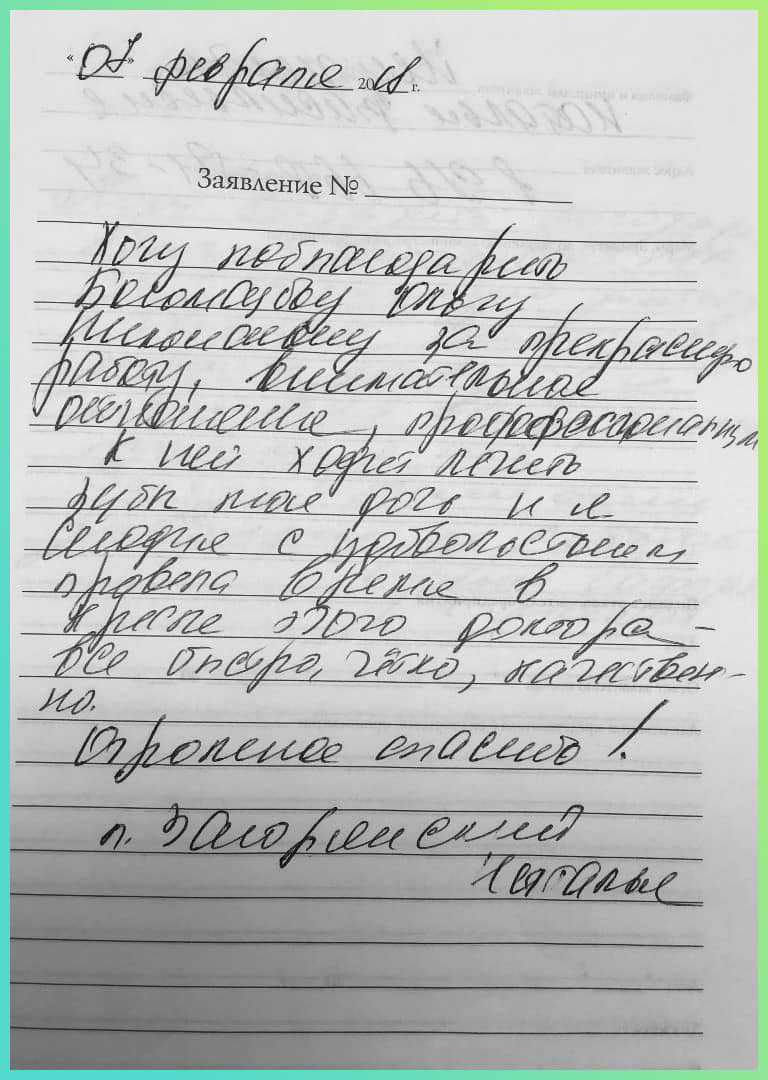 «07» февраля 2018 г.
Заявление №
Хочу поблагодарить
Ольгу
Николаевну за прекрасную
работу, внимательное
отношение, профессионализм
К ней ходит лечить
зубы моя дочь и я
сегодня с удовольствием
провела время в
кресле этого доктора -
все быстро, чётко, качествен-
но.
Огромное спасибо!
п. Загорянский
Наталья